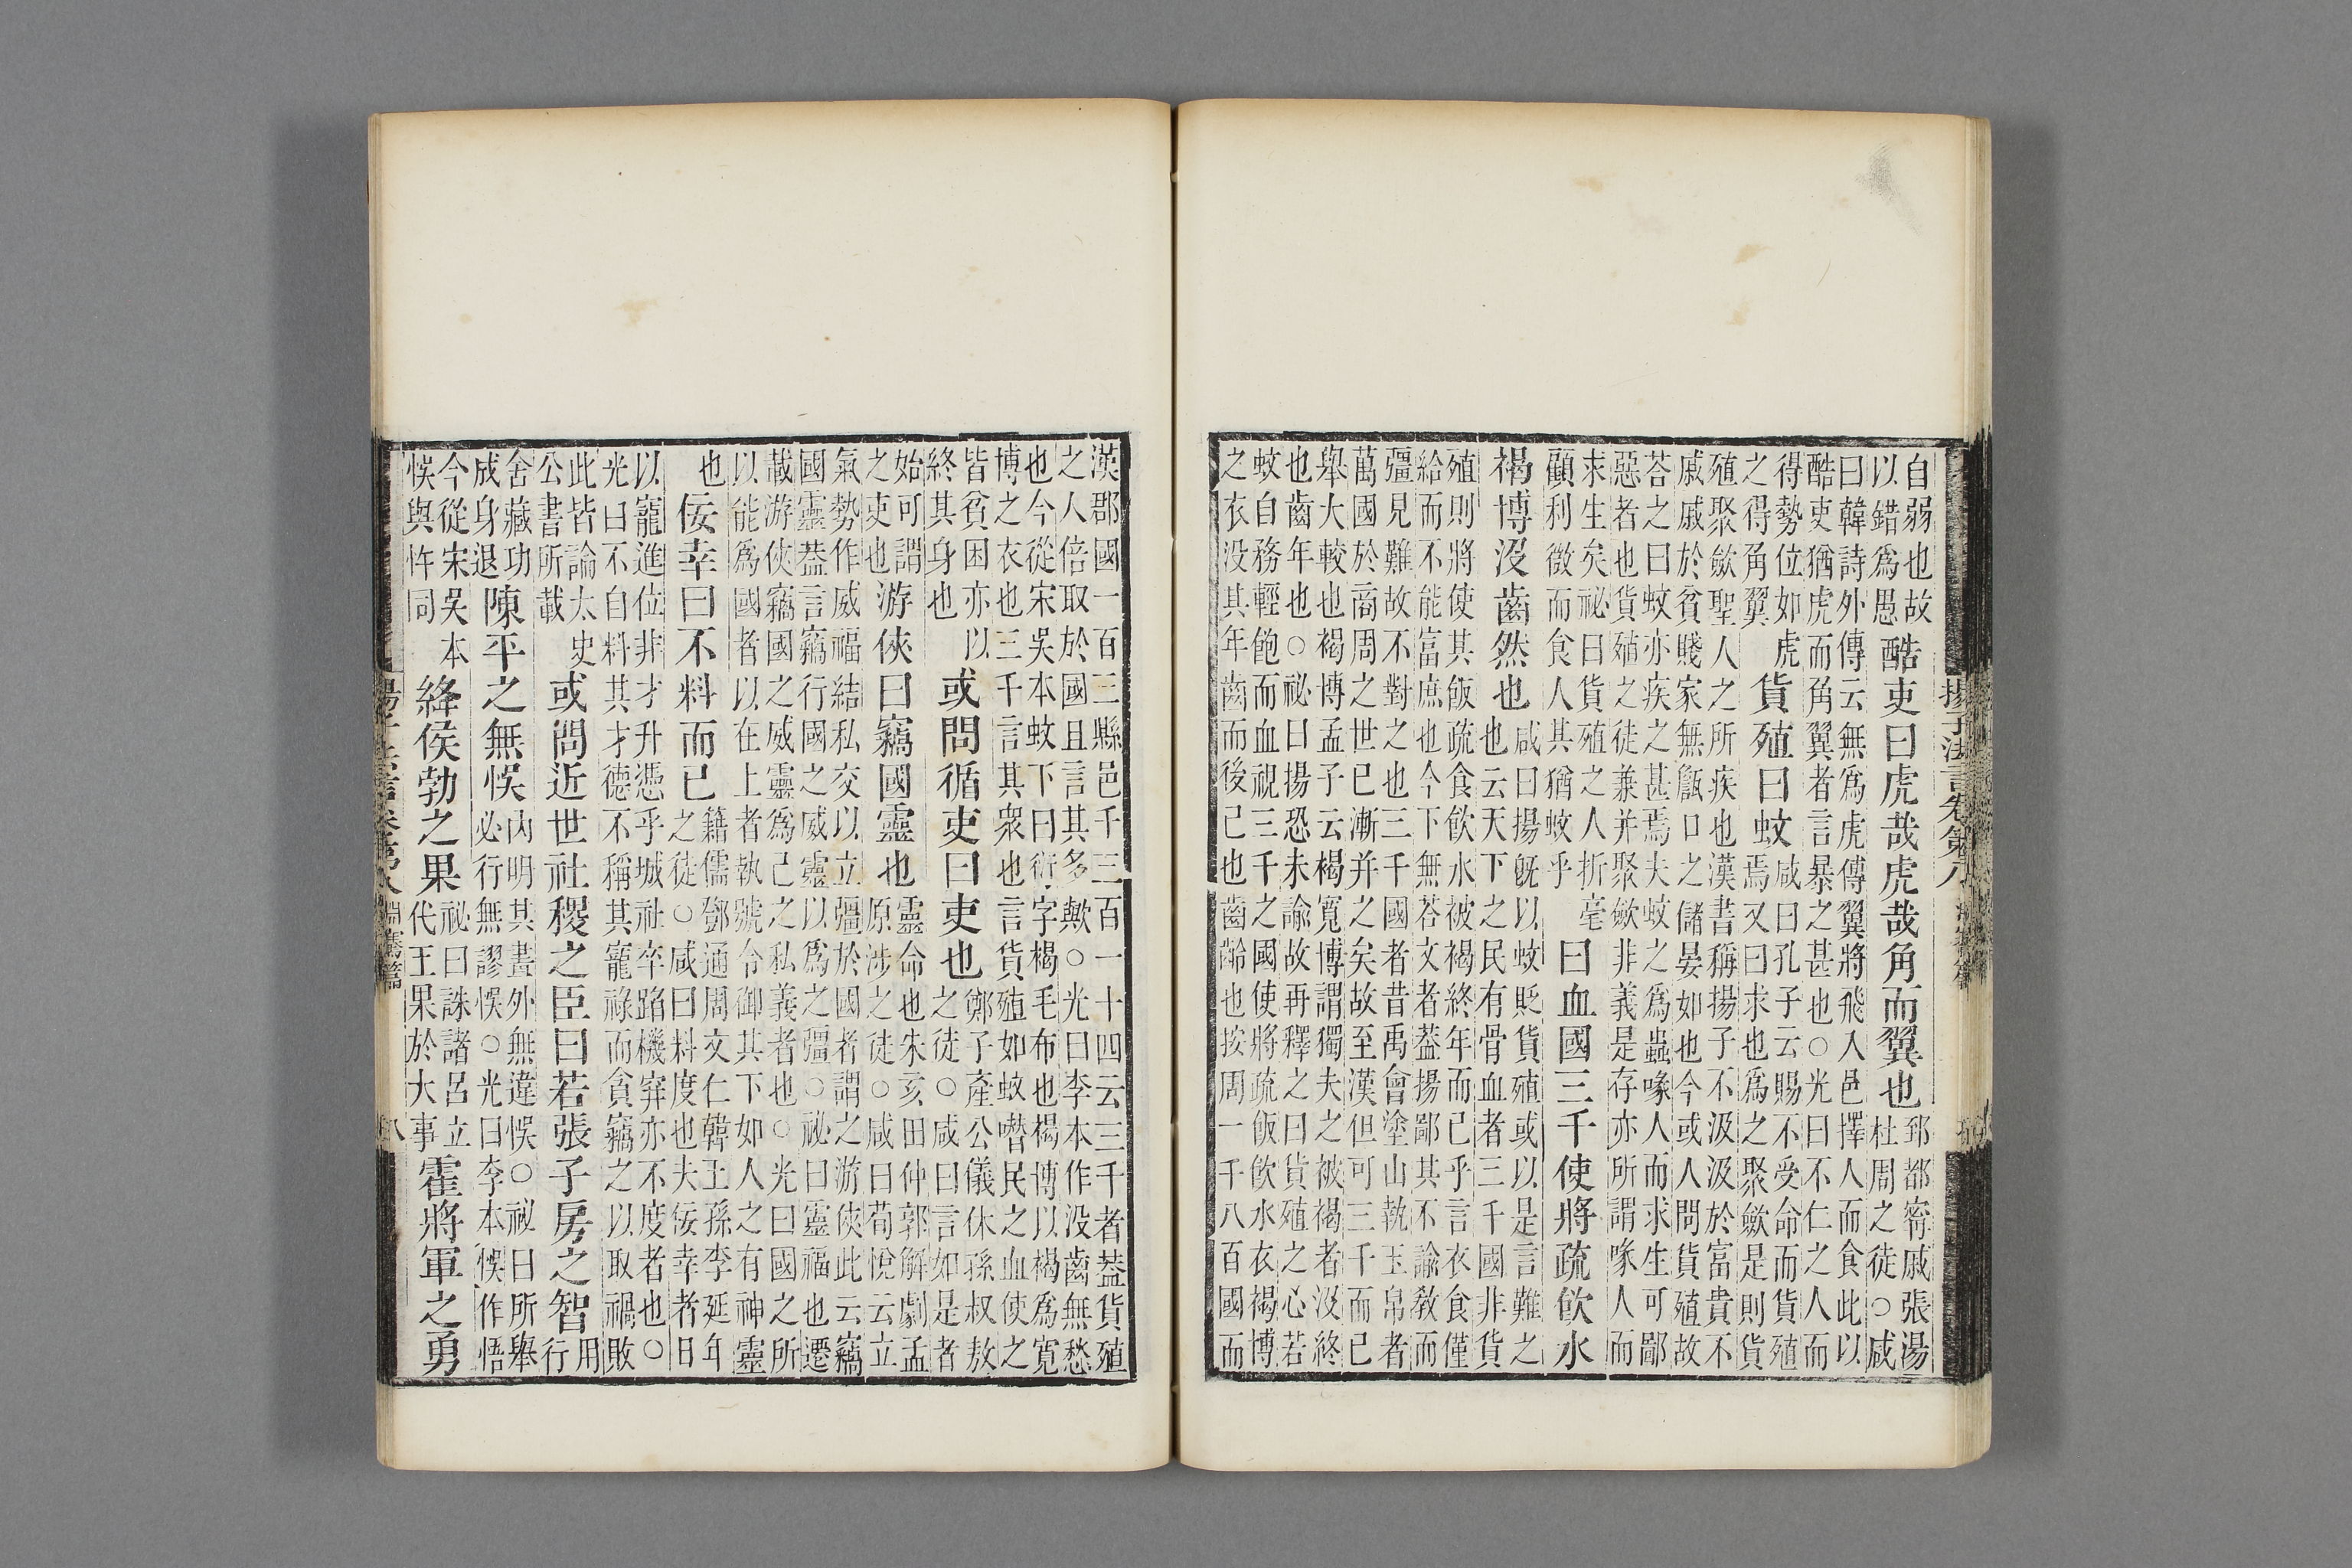 揚子法言卷第八
自弱也故
以錯爲愚
酷吏曰虎哉虎哉角而翼也
郅都寗戚張湯
杜周之徒○咸
曰韓詩外傳云無爲虎傳翼將飛入邑擇人而食此以
酷吏猶虎而角翼者言暴之甚也○光曰不仁之人而
得勢位如虎
之得角翼
貨殖曰蚊
咸曰孔子云賜不受命而貨殖
焉又曰求也爲之聚斂是則貨
殖聚斂聖人之所疾也漢書稱揚子不汲汲於富貴不
戚戚於貧賤家無甔口之儲晏如也今或人問貨殖故
荅之曰蚊亦疾之甚焉夫蚊之爲蟲喙人而求生可鄙
惡者也貨殖之徒兼并聚斂非義是存亦所謂喙人而
求生矣祕曰貨殖之人折毫
顧利徵而食人其猶蚊乎
曰血國三千使將疏飲水
褐博沒齒然也
咸曰揚旣以蚊貶貨殖或以是言難之
也云天下之民有骨血者三千國非貨
殖則將使其飯疏食飲水被褐終年而已乎言衣食僅
給而不能富庶也今下無荅文者葢揚鄙其不諭教而
彊見難故不對之也三千國者昔禹會塗山執玉帛者
萬國於商周之世已漸并之矣故至漢但可三千而已
舉大較也褐博孟子云褐寬博謂獨夫之被褐者沒終
也齒年也○祕曰揚恐未諭故再釋之曰貨殖之心若
蚊自務輕飽而血視三千之國使將疏飯飲水衣褐博
之衣没其年齒而後已也齒齡也按周一千八百國而
漢郡國一百三縣邑千三百一十四云三千者葢貨殖
之人倍取於國且言其多歟○光曰李本作没齒無愁
也今從宋吳本蚊下曰衍字褐毛布也褐博以褐爲寬
博之衣也三千言其衆也言貨殖如蚊噆民之血使之
皆貧困亦以
終其身也
或問循吏曰吏也
鄭子產公儀休孫叔敖
之徒○咸曰言如是者
始可謂
之吏也
游俠曰竊國靈也
靈命也朱亥田仲郭解劇孟
原涉之徒○咸曰荀悅云立
氣勢作威福結私交以立彊於國者謂之游俠此云竊
國靈葢言竊行國之威靈以爲之彊○祕曰靈福也遷
載游俠竊國之威靈爲己之私義者也○光曰國之所
以能爲國者以在上者執號令御其下如人之有神靈
也
佞幸曰不料而已
籍儒鄧通周文仁韓王孫李延年
之徒○咸曰料度也夫佞幸者曰
以寵進位非才升憑乎城社卒蹈機穽亦不度者也○
光曰不自料其才德不稱其寵祿而貪竊之以取禍敗
此皆論太史
公書所載
或問近世社稷之臣曰若張子房之智
用
行
舍藏功
成身退
陳平之無悞
內明其畫外無違悞○祕曰所舉
必行無謬悞○光曰李本悞作悟
今從宋吳本
悞與忤同
絳侯勃之果
祕曰誅諸呂立
代王果於大事
霍將軍之勇
八